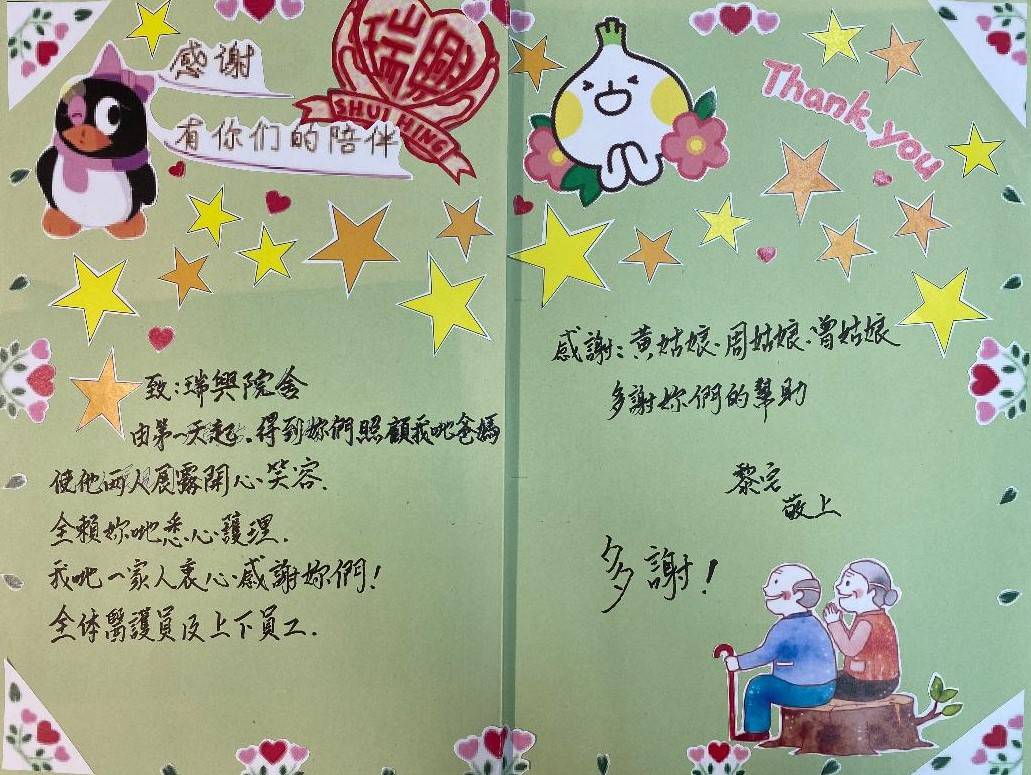 感谢
有你们的陪伴
瑞興
SHUI HING
致：瑞興院舍
由第一天起．得到妳們照顧我哋爸媽
使他両人展露開心笑容．
全賴妳哋悉心護理．
我哋一家人衷心感謝妳們！
全体醫護員及上下員工．
Thank you
感謝：黄姑娘．周姑娘．曾姑娘
多謝妳們的幫助
黎宅
敬上
多謝！